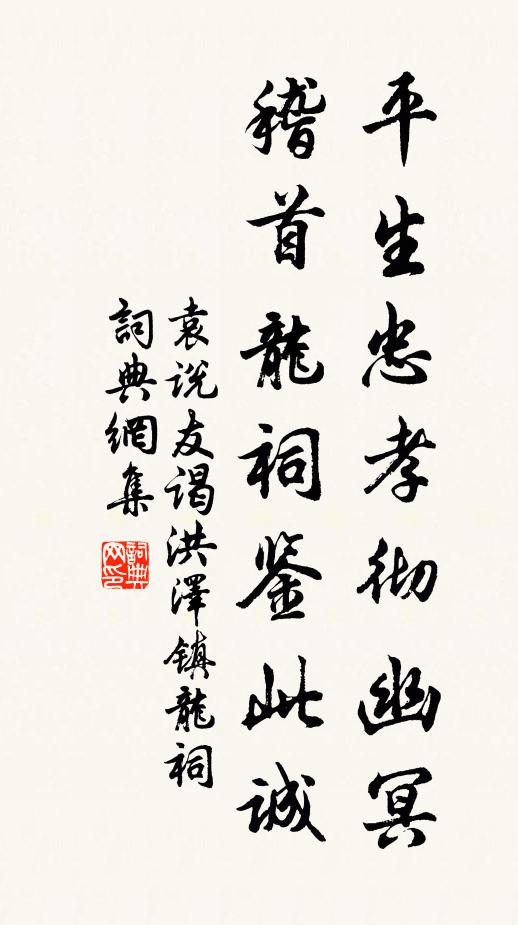 平生忠孝彻幽冥
稽首龍祠鉴此誠
袁说友谒洪澤镇龍祠
詞典網集
詞典网印